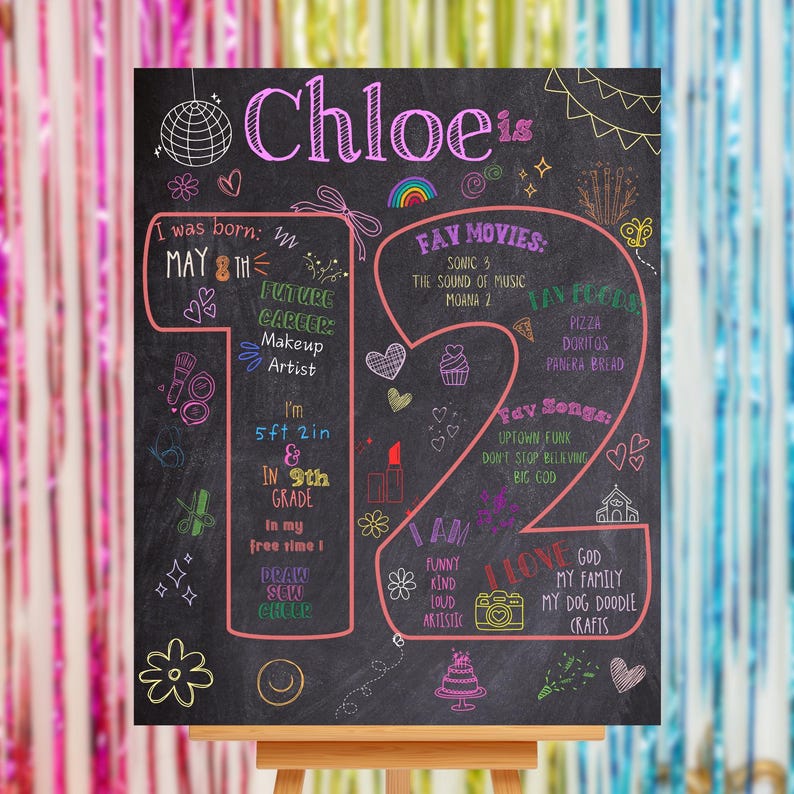 Chloe is
I was born:
MAY 8TH
FUTURE
CAREER:
Makeup
Artist
I'm
5ft 2in
&
IN 9th
GRADE
In my
free time I
DRAW
SEW
CHEER
FAV MOVIES:
SONIC 3
THE SOUND OF MUSIC
MOANA 2
FAV FOODS:
PIZZA
DORITOS
PANERA BREAD
Fav Songs:
UPTOWN FUNK
DON'T STOP BELIEVING
BIG GOD
I AM
FUNNY
KIND
LOUD
ARTISTIC
I LOVE
GOD
MY FAMILY
MY DOG DOODLE
CRAFTS